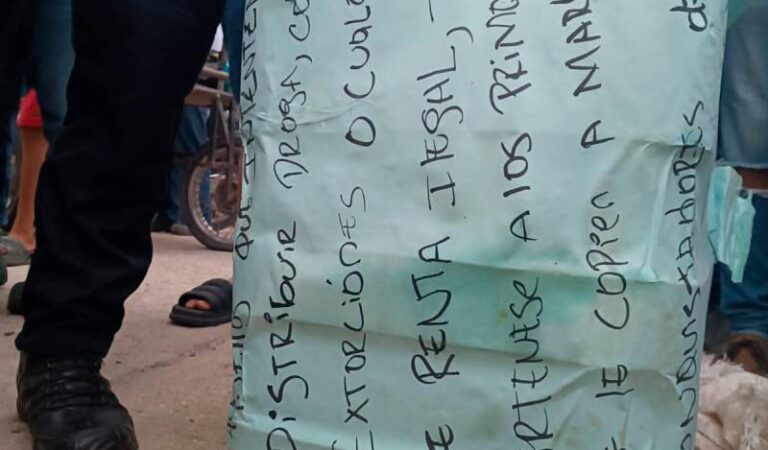 QUE INTENTE
DISTRIBUIR DROGA, CO
EXTORCIONES O CUALQ
E RENTA ILEGAL,
RTENSE A LOS PRIMO
E LE COPIEN A MAR
ONQUISTADORES de